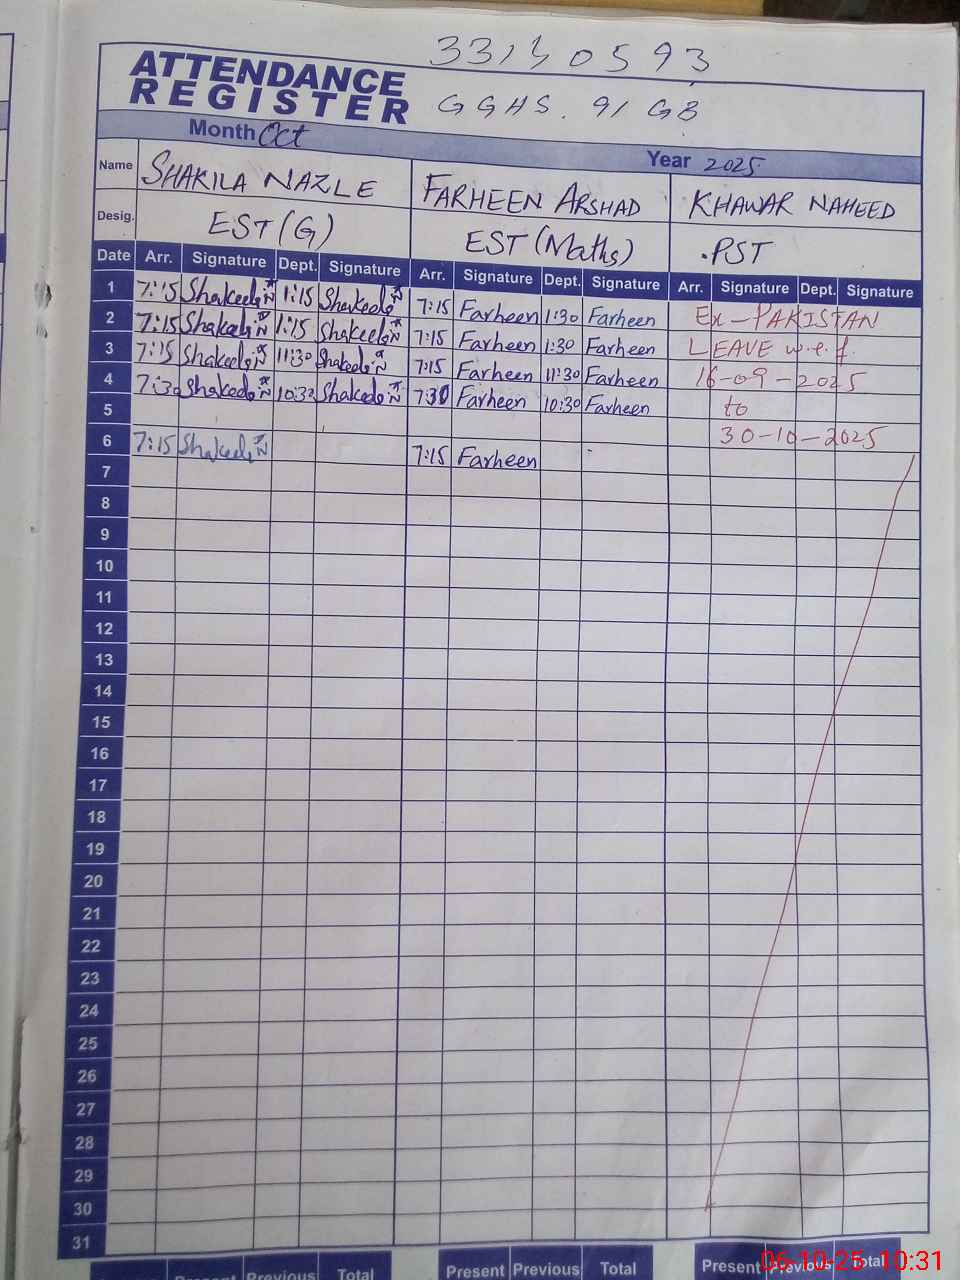 33130593
ATTENDANCE
REGISTER
GGHS. 91 GB
Month Oct Year 2025
Name SHAKILA NAZLE FARHEEN ARSHAD KHAWAR NAHEED
Desig. EST (G) EST (Maths) .PST
Date Arr. Signature Dept. Signature Arr. Signature Dept. Signature Arr. Signature Dept. Signature
1 7:15 Shakeela 1:15 Shakeela 7:15 Farheen 1:30 Farheen Ex-PAKISTAN
2 7:15 Shakeela 1:15 Shakeela 7:15 Farheen 1:30 Farheen LEAVE w.e.f.
3 7:15 Shakeela 11:30 Shakeela 7:15 Farheen 11:30 Farheen 16-09-2025
4 7:30 Shakeela 10:30 Shakeela 7:30 Farheen 10:30 Farheen to
5 30-10-2025
6 7:15 Shakeela 7:15 Farheen
7
8
9
10
11
12
13
14
15
16
17
18
19
20
21
22
23
24
25
26
27
28
29
30
31
Present Previous Total Present Previous Total Present Previous Total
06-10-25 10:31